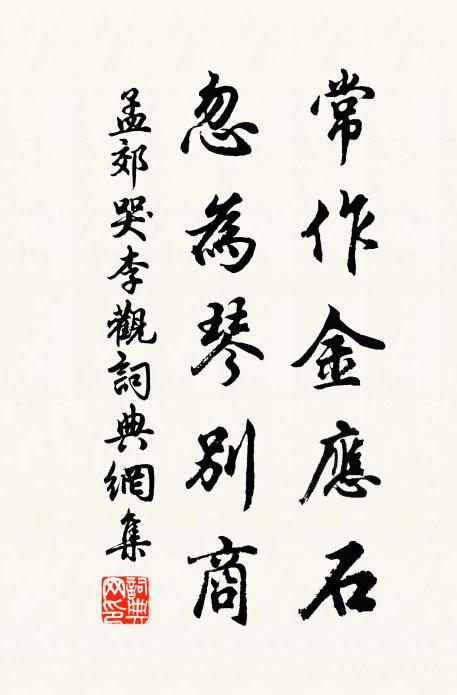 常作金應石
忽為琴別商
孟郊哭李觀詞典網集
詞典網印